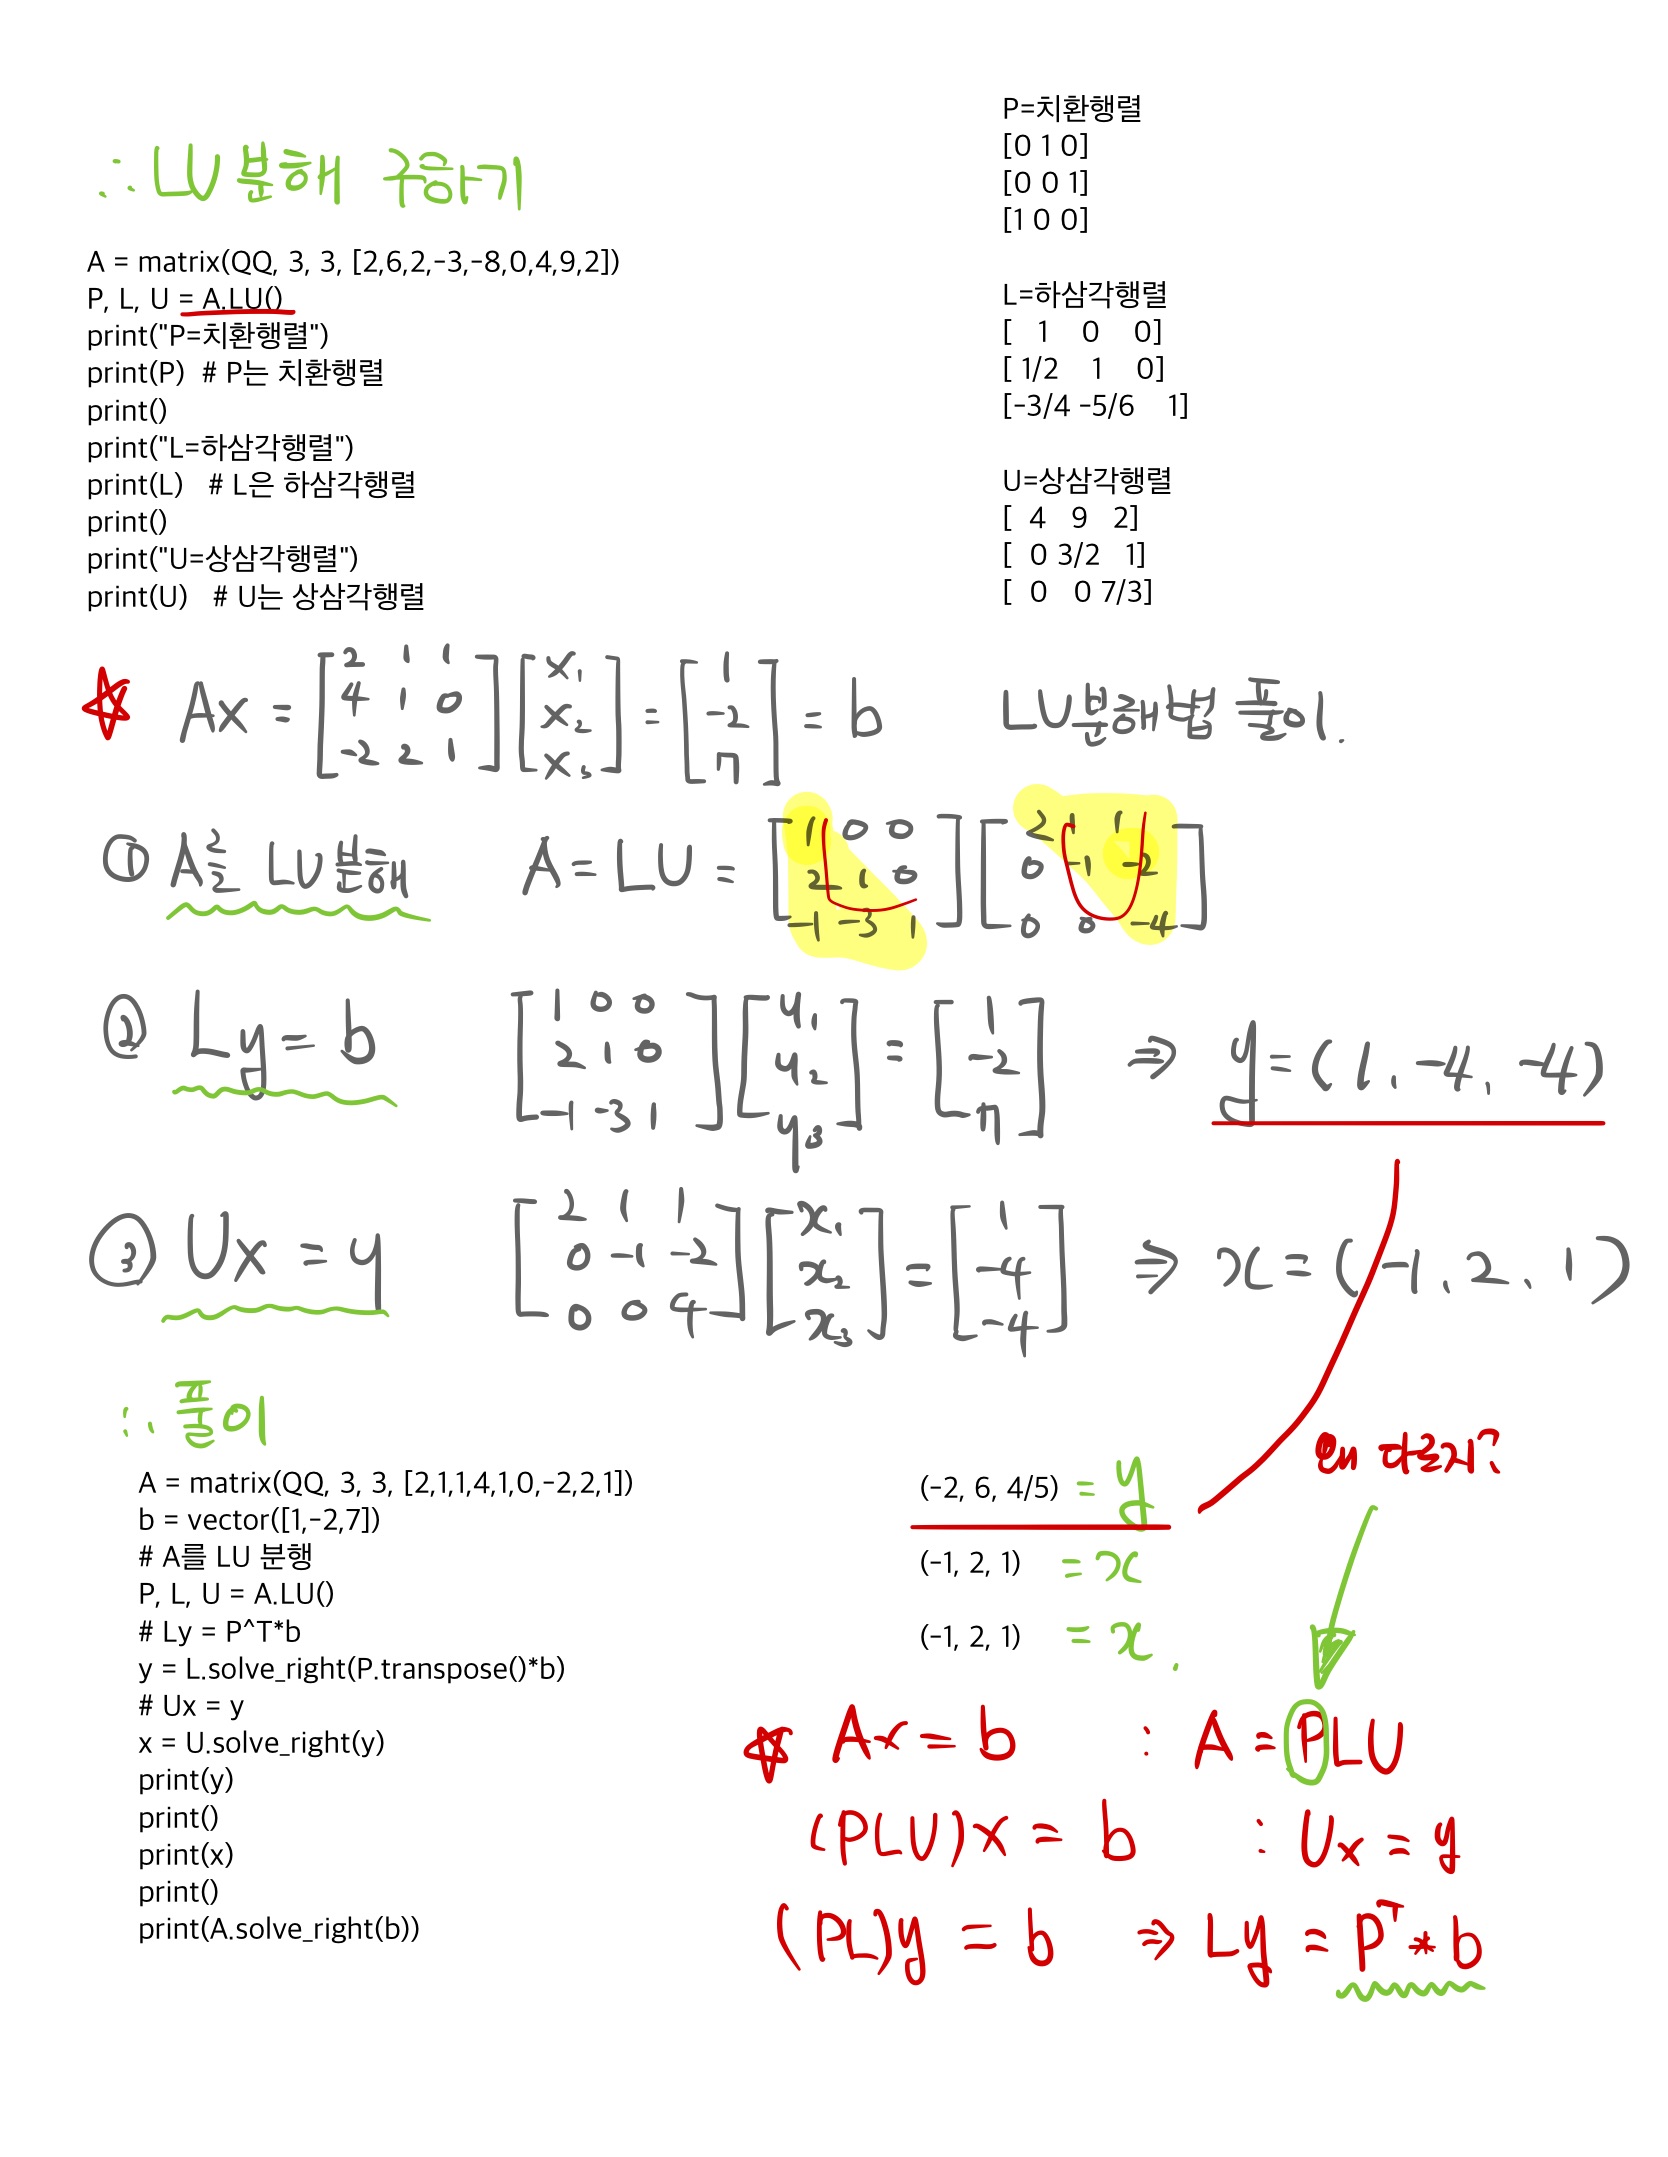 ∴ LU분해 구하기
A = matrix(QQ, 3, 3, [2,6,2,-3,-8,0,4,9,2])
P, L, U = A.LU()
print("P=치환행렬")
print(P)  # P는 치환행렬
print()
print("L=하삼각행렬")
print(L)   # L은 하삼각행렬
print()
print("U=상삼각행렬")
print(U)   # U는 상삼각행렬
P=치환행렬
[0 1 0]
[0 0 1]
[1 0 0]
L=하삼각행렬
[   1    0    0]
[ 1/2    1    0]
[-3/4 -5/6    1]
U=상삼각행렬
[  4   9   2]
[  0 3/2   1]
[  0   0 7/3]
☆ Ax = [2 1 1 / 4 1 0 / -2 2 1] [x₁ / x₂ / x₃] = [1 / -2 / 7] = b   LU분해법 풀이.
① A를 LU분해   A = LU = [1 0 0 / 2 1 0 / -1 -3 1] [2 1 1 / 0 -1 -2 / 0 0 -4]
② Ly = b   [1 0 0 / 2 1 0 / -1 -3 1] [y₁ / y₂ / y₃] = [1 / -2 / 7] ⇒ y = (1, -4, -4)
③ Ux = y   [2 1 1 / 0 -1 -2 / 0 0 4] [x₁ / x₂ / x₃] = [1 / -4 / -4] ⇒ x = (-1, 2, 1)
∴ 풀이
A = matrix(QQ, 3, 3, [2,1,1,4,1,0,-2,2,1])
b = vector([1,-2,7])
# A를 LU 분행
P, L, U = A.LU()
# Ly = P^T*b
y = L.solve_right(P.transpose()*b)
# Ux = y
x = U.solve_right(y)
print(y)
print()
print(x)
print()
print(A.solve_right(b))
왜 다르지?
(-2, 6, 4/5) = y
(-1, 2, 1) = x
(-1, 2, 1) = x.
☆ Ax = b   : A = PLU
(PLU)x = b   : Ux = y
(PL)y = b ⇒ Ly = Pᵀ * b